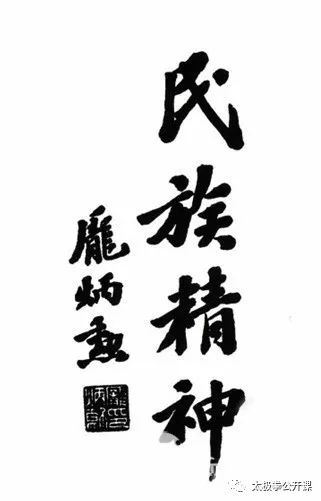 民族精神
龐炳勳
太极拳公开课